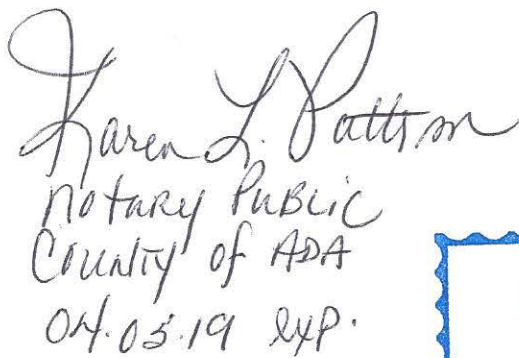 Karen L. Pattison
Notary Public
County of ADA
04.05.19 exp.